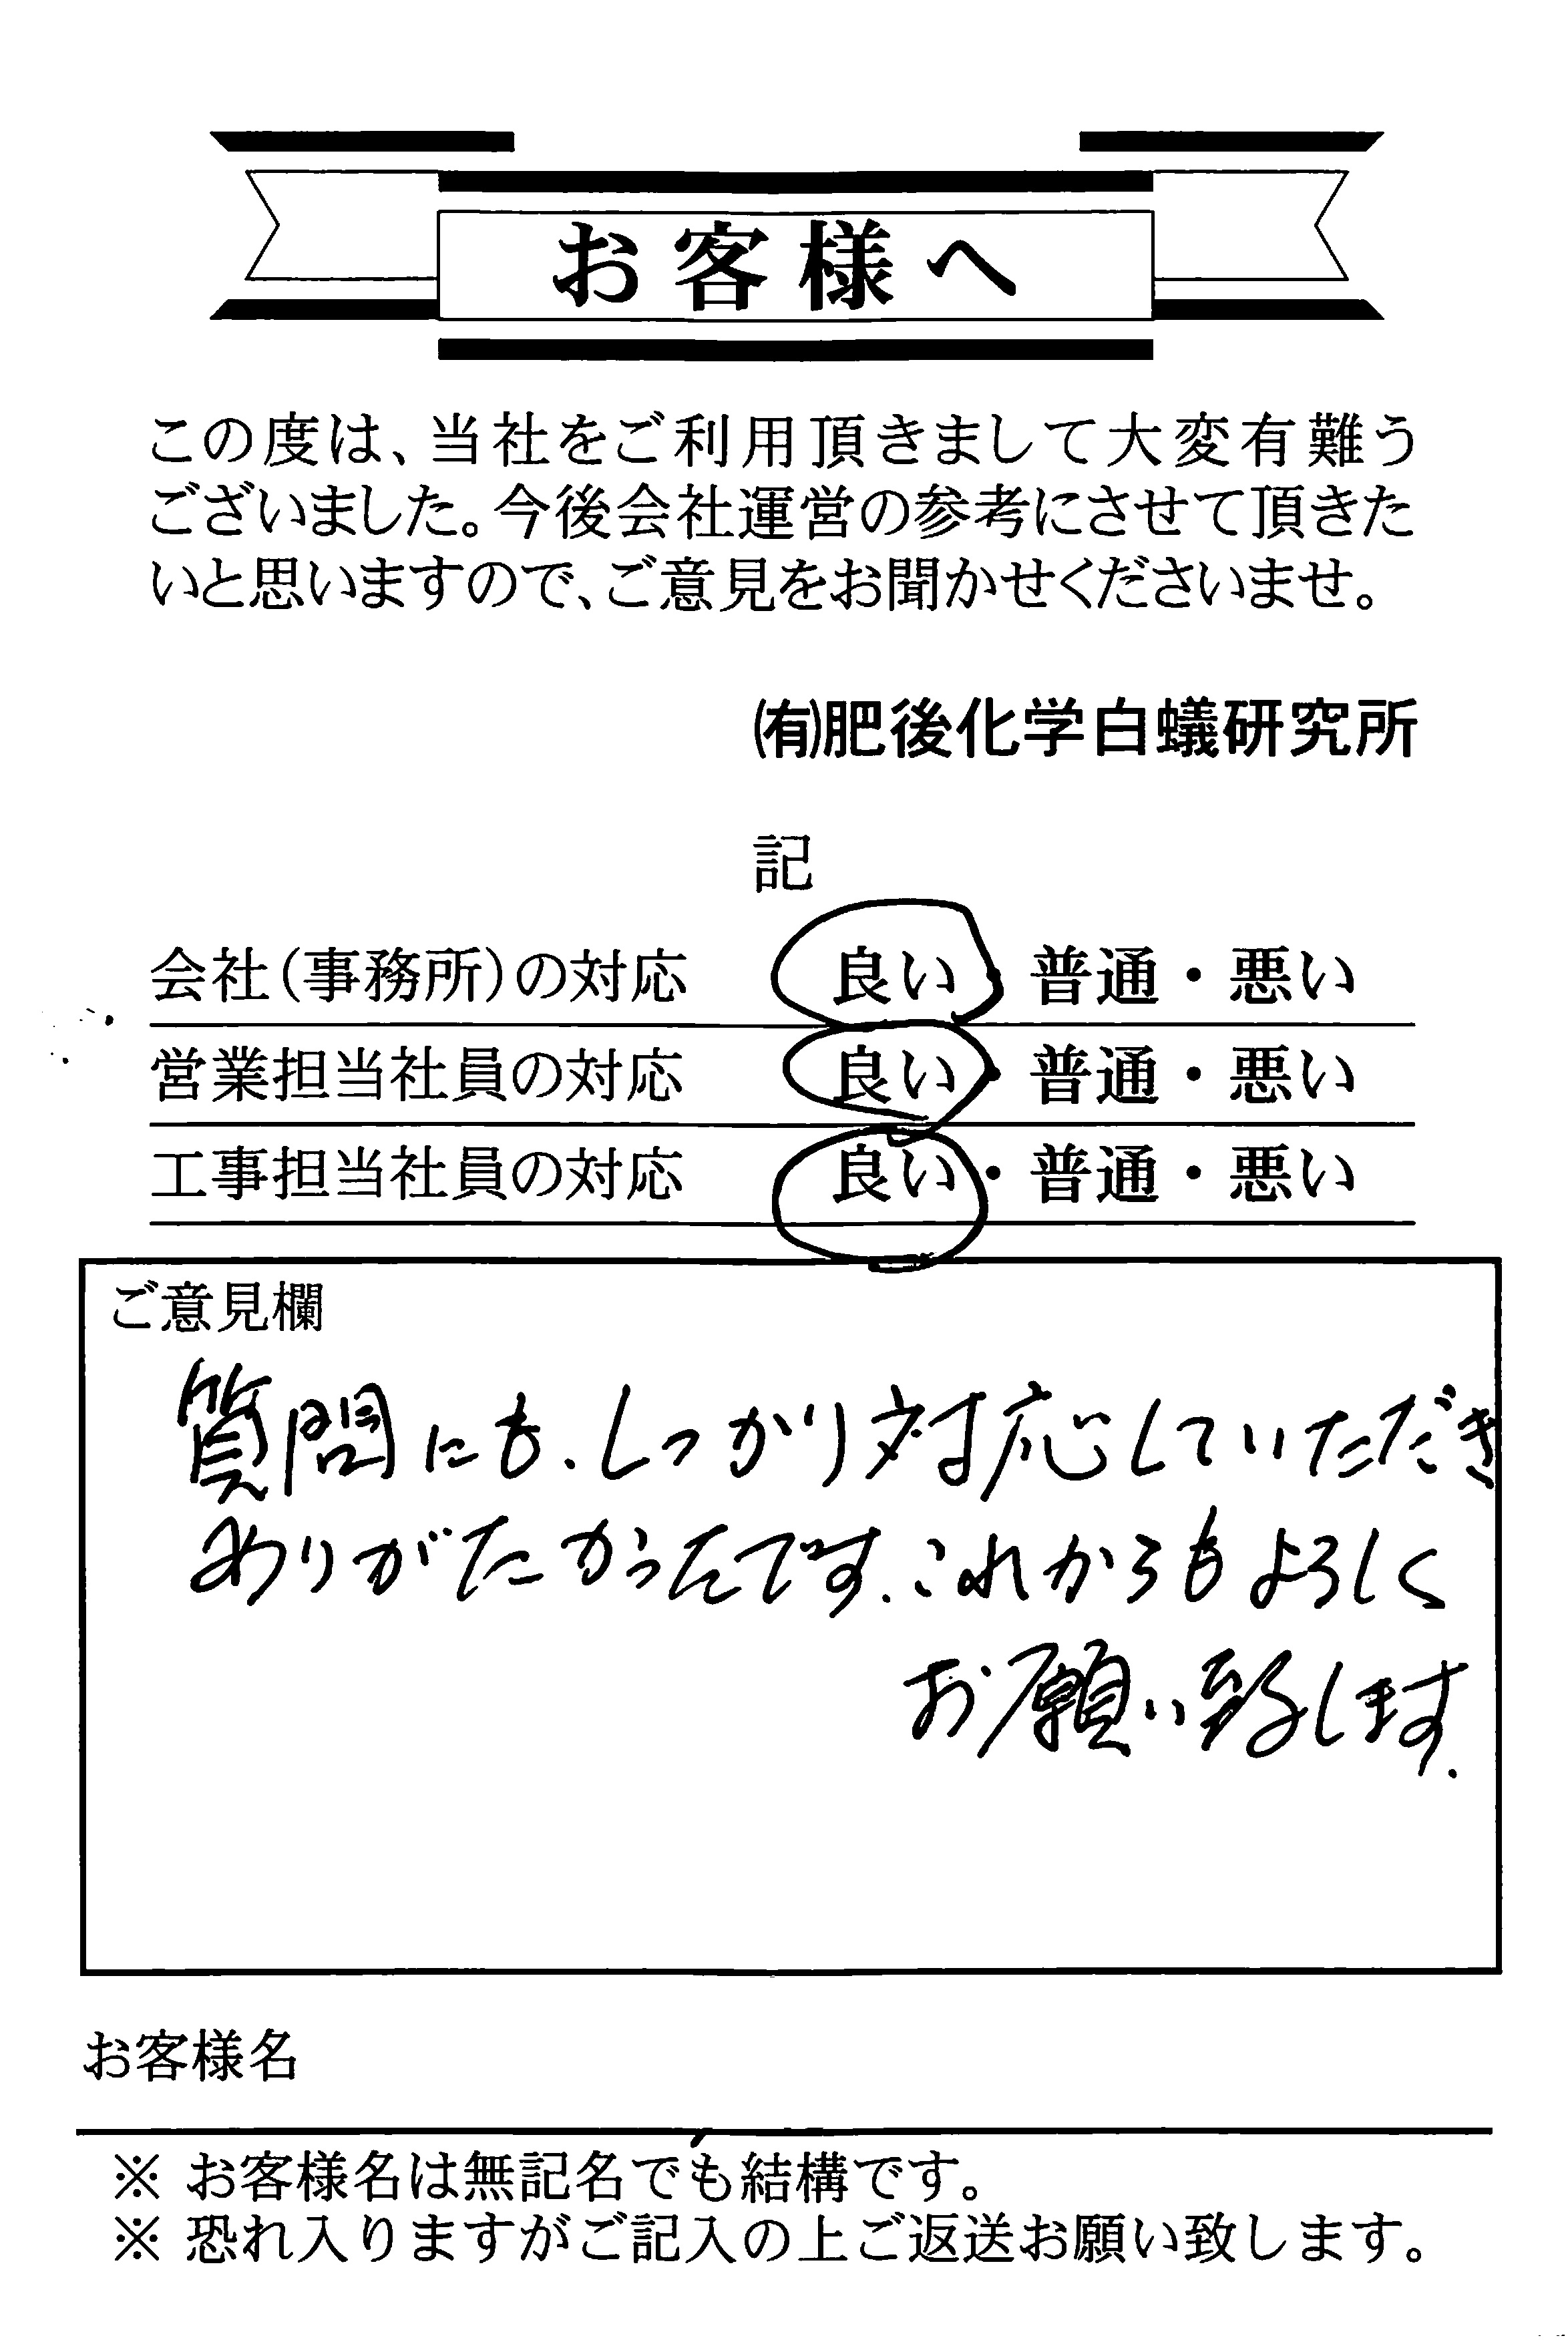 お客様へ
この度は、当社をご利用頂きまして大変有難う
ございました。今後会社運営の参考にさせて頂きた
いと思いますので、ご意見をお聞かせくださいませ。
㈲肥後化学白蟻研究所
記
会社(事務所)の対応 良い・普通・悪い
営業担当社員の対応 良い・普通・悪い
工事担当社員の対応 良い・普通・悪い
ご意見欄
質問にも、しっかり対応していただき
ありがたかったです。これからもよろしく
お願い致します。
お客様名
※ お客様名は無記名でも結構です。
※ 恐れ入りますがご記入の上ご返送お願い致します。